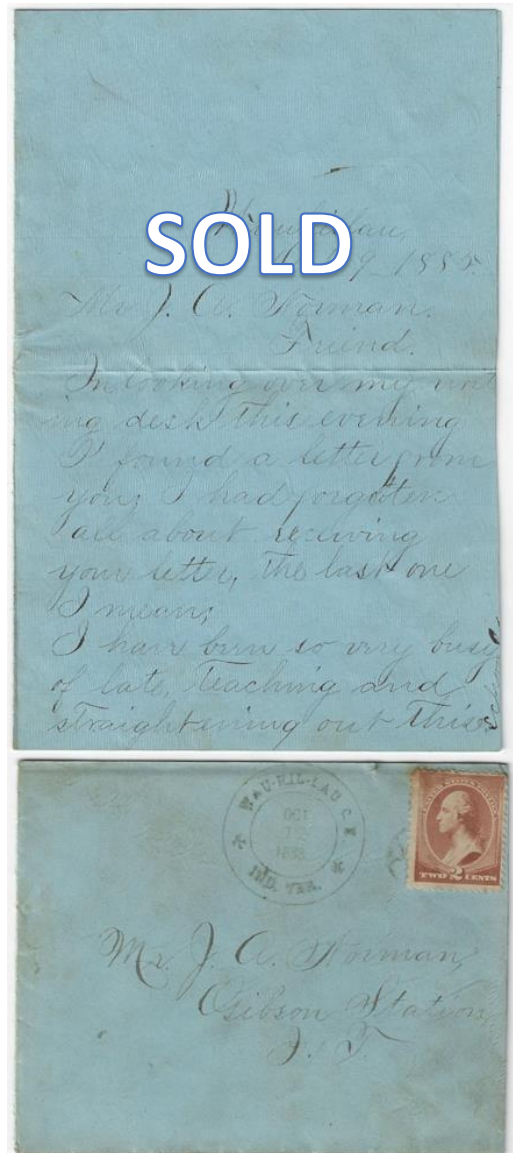 SOLD
Wauhillau,
9_1885.
Mr J. A. Norman.
Friend.
In looking over my writ
ing desk this evening
I found a letter from
you; I had forgotten
all about receiving
your letter, the last one
I mean;
I have been so very busy
of late, teaching and
straightening out this
WAU-HIL-LAU C.N.
OCT
IND. TER.
UNITED STATES POSTAGE
TWO 2 CENTS
Mr. J. A. Norman,
Gibson Station
I. T.